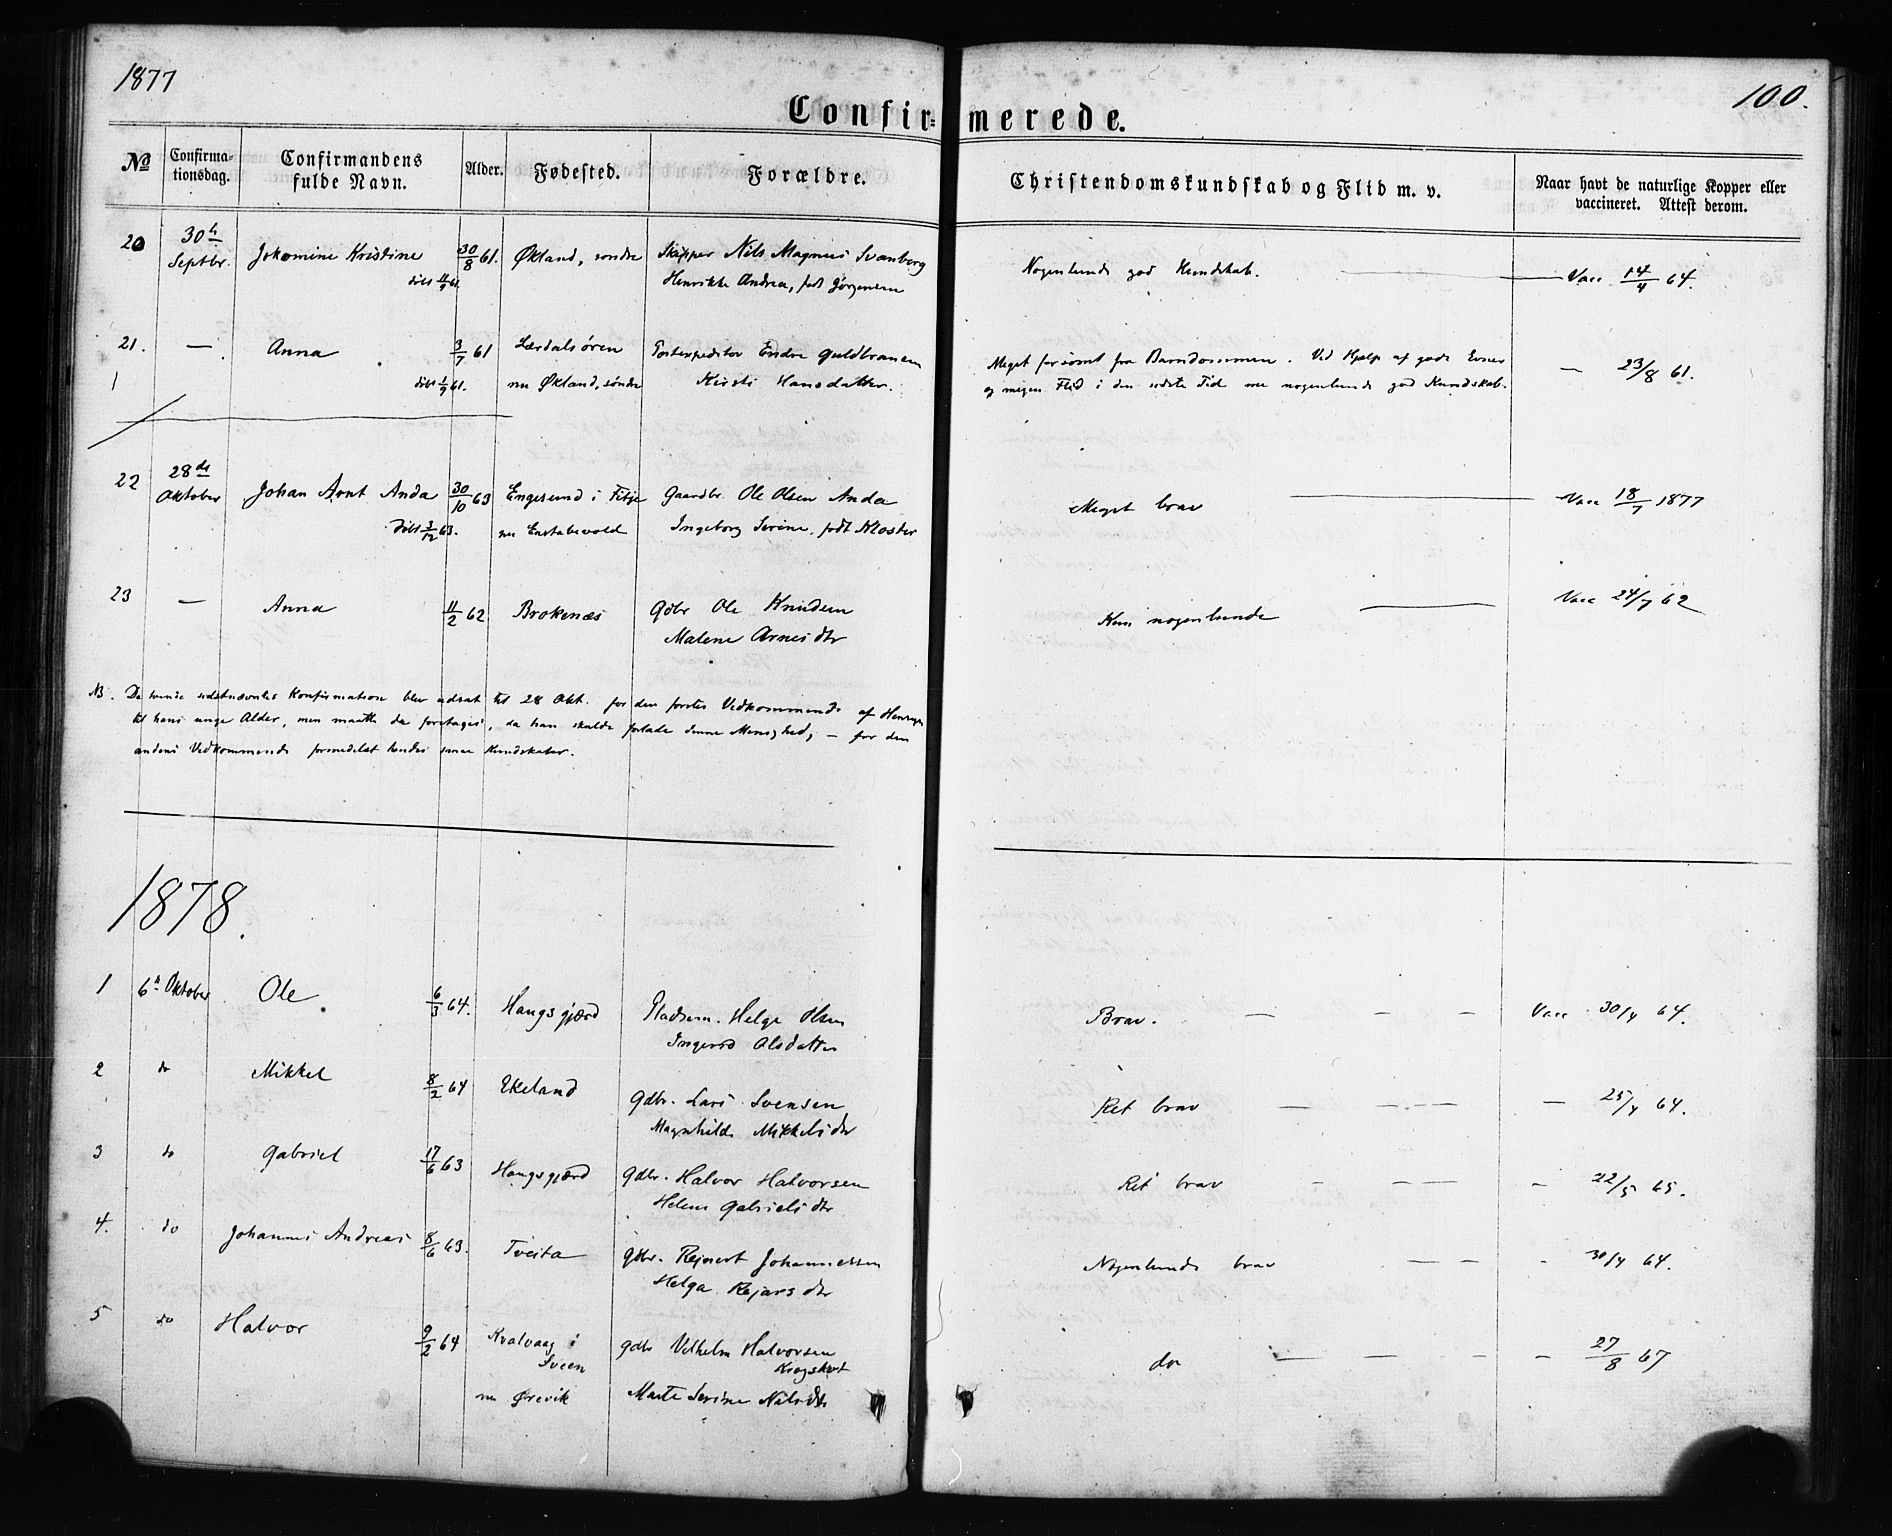 1877
100.
Confir= merede.
No
Confirma-
tionsdag.
Confirmandens
fulde Navn.
Alder.
Fødested.
Forældre.
Christendomskundskab og Flid m. v.
Naar havt de naturlige Kopper eller
vaccineret. Attest derom.
20 30te Septbr. Jokomine Kristine 30/8 61. Økland, søndre Skipper Nils Magnus Svanberg Nogenlunde god Kundskab. — Vacc 14/4 64.
døbt 11/9 61. Henrikke Andrea, født Jørgensen
21. — Anna 3/7 61 Lærdalsøren Postexpeditør Endre Guldbransen Meget forsømt fra Barndommen. Ved Hjælp af gode Evner — 23/8 61.
døbt 1/9 61. nu Økland, søndre Kirsti Hansdatter. og megen Flid i den sidste Tid nogenlunde god Kundskab.
22 28de Oktober Johan Arnt Anda 30/10 63 Engesund i Fitje Gaardbr. Ole Olsen Anda Meget brav — Vacc 18/7 1877
Døbt 3/12 63. nu Enstabevold Ingeborg Serine, født Kloster
23 — Anna 11/2 62 Brokenæs Gdbr Ole Knudsen Kun nogenlunde — Vacc 24/7 62
Malene Arnesdtr
NB. De tvende sidstnævntes Konfirmation blev udsat til 28 Okt. for den førstes Vedkommende af Hensyn
til hans unge Alder, men maatte da foretages, da han skulde forlade denne Menighed, — for den
andens Vedkommende formedelst hendes smaa Kundskaber.
1878.
1 6te Oktober Ole 6/3 64. Haugsgjærd Pladsm. Helge Olsen Brav. — — — Vacc 30/4 64.
Ingerd Olsdatter
2 do Mikkel 8/2 64 Ekeland Gdbr. Lars Svensen Ret brav — — — — 25/4 64.
Magnhilde Mikkelsdtr
3 do Gabriel 17/6 63 Haugsgjærd Gdbr. Halvor Halvorsen Ret brav — — — — 22/5 65.
Helene Gabrielsdtr
4. do Johannes Andreas 8/6 63. Tveita Gdbr. Rejnert Johannessen Nogenlunde brav — — — 30/4 64.
Helga Rejarsdtr
5 do Halvor 9/2 64 Kvalvaag i Sveen Gdbr Vilhelm Halvorsen do — — — — 27/8 67
nu Ørevik Marte Serine Nilsdtr